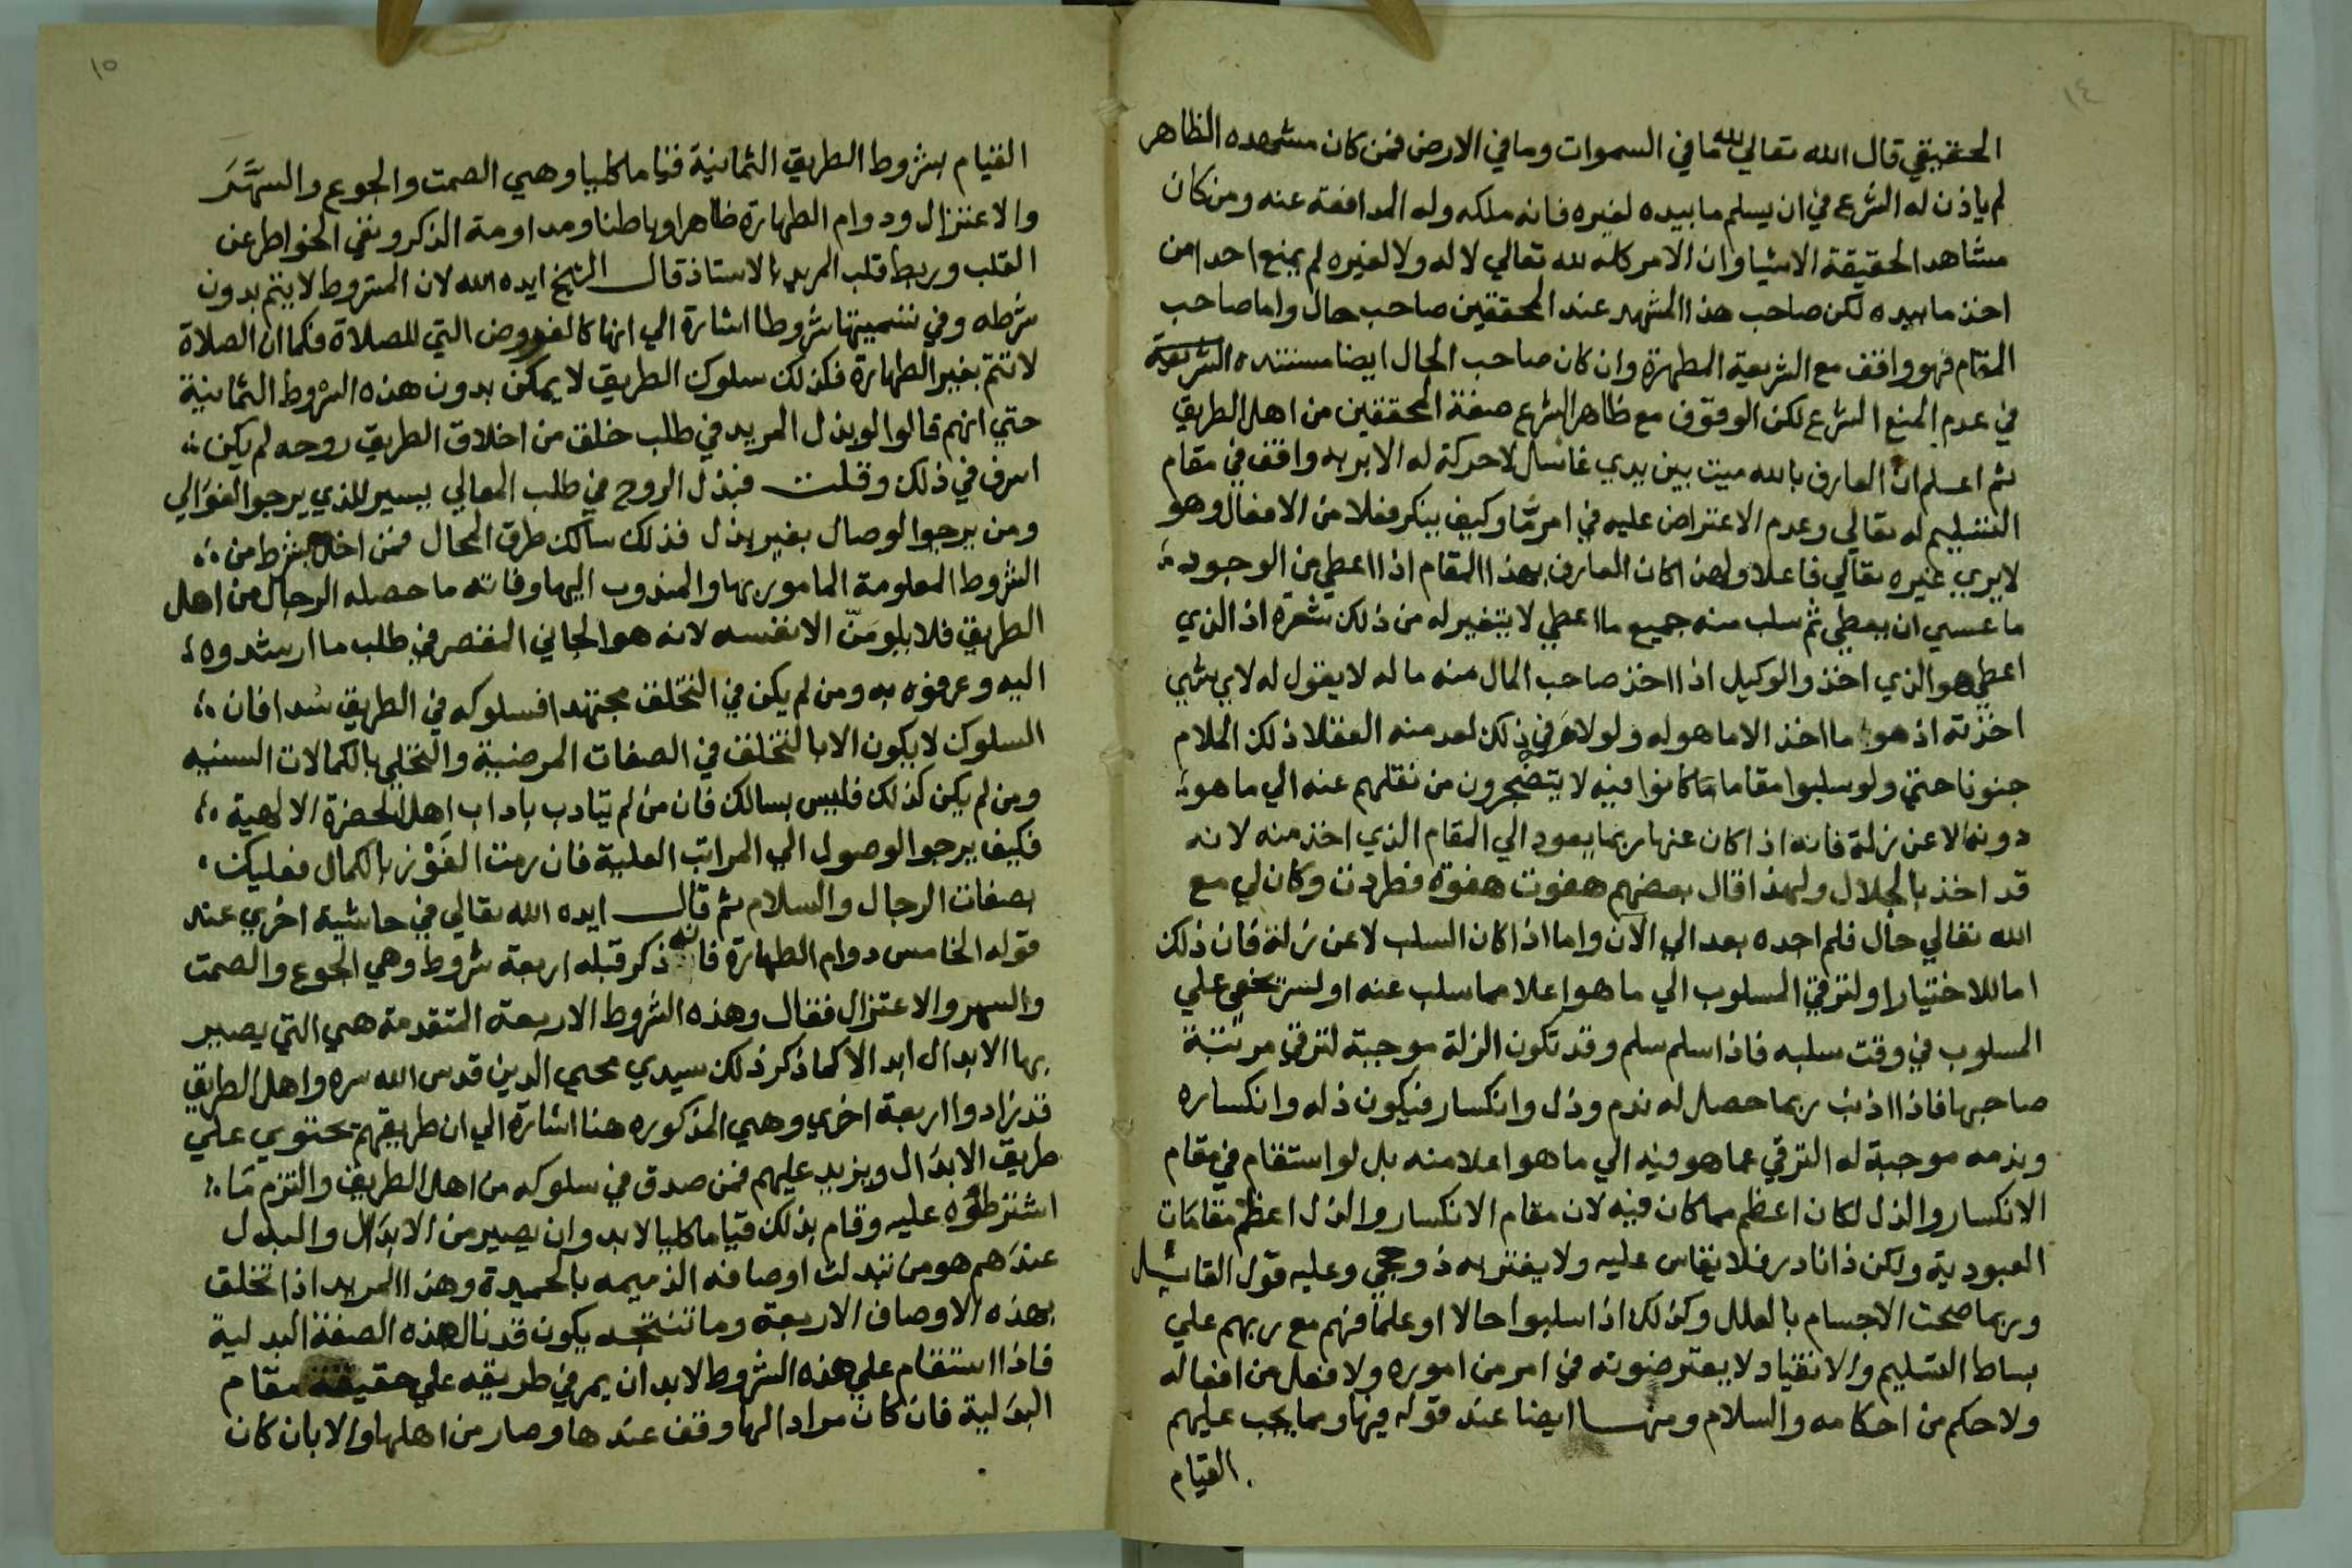 ١٤
الحقيقي قال الله تعالي لله ما في السموات وما في الارض فمن كان مشهده الظاهر
لم ياذن له الشرع في ان يسلم ما بيده لغيره فانه ملكه وله المدافعة عنه ومن كان
مشاهد الحقيقة الاشيا وان الامر كله لله تعالي لا له ولا لغيره لم يمنع احدا من
اخذ ما بيده لكن صاحب هذا المشهد عند المحققين صاحب حال واما صاحب
المقام فهو واقف مع الشريعة المطهرة وان كان صاحب الحال ايضا مستنده الشريعة
في عدم المنع الشرع لكن الوقوف مع ظاهر الشرع صفة المحققين من اهل الطريق
ثم اعلم ان العارف بالله ميت بين يدي غاسل لا حركة له الا بربه واقف في مقام
التسليم له تعالي وعدم الاعتراض عليه في امر مَّا وكيف ينكر فعلا من الافعال وهو
لا يري غيره تعالي فاعلا ولهذا كان العارف بهذا المقام اذا اعطي من الوجود
ما عسي ان يعطي ثم سلب منه جميع ما اعطي لا يتغير له من ذلك شعرة اذ الذي
اعطي هو الذي اخذ والوكيل اذا اخذ صاحب المال منه ما له لا يقول له لاي شي
اخذته اذ هو ما اخذ الا ما هو له ولو لامَ في ذلك لعد منه العقلا ذلك الملام
جنونا حتي ولو سلبوا مقاما مَا كانوا فيه لا يتضجرون من نقلهم عنه الي ما هو
دونه لا عن زلة فانه اذا كان عنها ربما يعود الي المقام الذي اخذ منه لانه
قد اخذ بالجلال ولهذا قال بعضهم هفوت هفوة فطردت وكان لي مع
الله تعالي حال فلم اجده بعد الي الآن واما اذا كان السلب لا عن زلة فان ذلك
اما للاختيار او لترقي المسلوب الي ما هو اعلا مما سلب عنه او لسر يخفي علي
المسلوب في وقت سلبه فاذا سلم سلم وقد تكون الزلة موجبة لترقي مرتبة
صاحبها فاذا اذنب ربما حصل له ندم وذل وانكسار فيكون ذله وانكساره
وندمه موجبة له الترقي عما هو فيه الي ما هو اعلا منه بل لو استقام في مقام
الانكسار والذل لكان اعظم مما كان فيه لان مقام الانكسار والذل اعظم مقامَات
العبودية ولكن ذا نادر فلا يقاس عليه ولا يغتر به ذو حجي وعليه قول القائل
وربما صحت الاجسام بالعلل وكذلك اذا سلبوا حالا او علما فهم مع ربهم علي
بساط التسليم والانقياد لا يعترضونه في امر من اموره ولا فعل من افعاله
ولا حكم من احكامه والسلام ومنها ايضا عند قوله فيها ومما يجب عليهم
القيام
١٥
القيام بشروط الطريق الثمانية قياما كليا وهي الصمت والجوع والسهَر
والاعتزال ودوام الطهارة ظاهرا وباطنا ومداومة الذكر ونفي الخواطر عن
القلب وربط قلب المريد بالاستاذ قال الشيخ ايده الله لان المشروط لا يتم بدون
شرطه وفي تسميتها شروطا اشارة الي انها كالفروض التي للصلاة فكما ان الصلاة
لا تتم بغير الطهارة فكذلك سلوك الطريق لا يمكن بدون هذه الشروط الثمانية
حتي انهم قالوا لو بذل المريد في طلب خلق من اخلاق الطريق روحه لم يكن
اسرف في ذلك وقلت فبذل الروح في طلب المعالي يسير للذي يرجوا الغوَالي
ومن يرجوا الوصال بغير بذل فذلك سالك طرق المحال فمن اخل بشرط من
الشروط المعلومة المامور بها والمندوب اليها وفاته ما حصله الرجال من اهل
الطريق فلا يلومَنّ الا نفسه لانه هو الجاني المقصر في طلب ما ارشدوه
اليه وعرفوه به ومن لم يكن في التخلق مجتهدا فسلوكه في الطريق سُدا فان
السلوك لا يكون الا بالتخلق في الصفات المرضية والتحلي بالكمالات السنيه
ومن لم يكن كذلك فليس بسالك فان من لم يتادب باداب اهل الحضرة الالهية
فكيف يرجوا الوصول الي المراتب العلية فان رمت الفَوْز بالكمال فعليك
بصفات الرجال والسلام ثم قال ايده الله تعالي في حاشية اخري عند
قوله الخامس دوام الطهارة فانه ذكر قبله اربعة شروط وهي الجوع والصمت
والسهر والاعتزال فقال وهذه الشروط الاربعة المتقدمة هي التي يصير
بها الابدال ابدالا كما ذكر ذلك سيدي محيي الدين قدس الله سره واهل الطريق
قد زادوا اربعة اخري وهي المذكوره هنا اشارة الي ان طريقهم تحتوي علي
طريق الابدَال ويزيد عليهم فمن صدق في سلوكه من اهل الطريق والتزم مَا
اشترطوه عليه وقام بذلك قياما كليا لا بد وان يصير من الابدَال والبدل
عندَهم هو من تبدلت اوصافه الذميمه بالحميدة وهذا المريد اذا تخلق
بهذه الاوصاف الاربعة وما تنتجه يكون قد نال هذه الصفة البدلية
فاذا استقام علي هذه الشروط لا بد ان يمر في طريقه علي حقيقة مقام
البدَلية فان كان مرادا لها وقف عندها وصار من اهلها والا بان كان